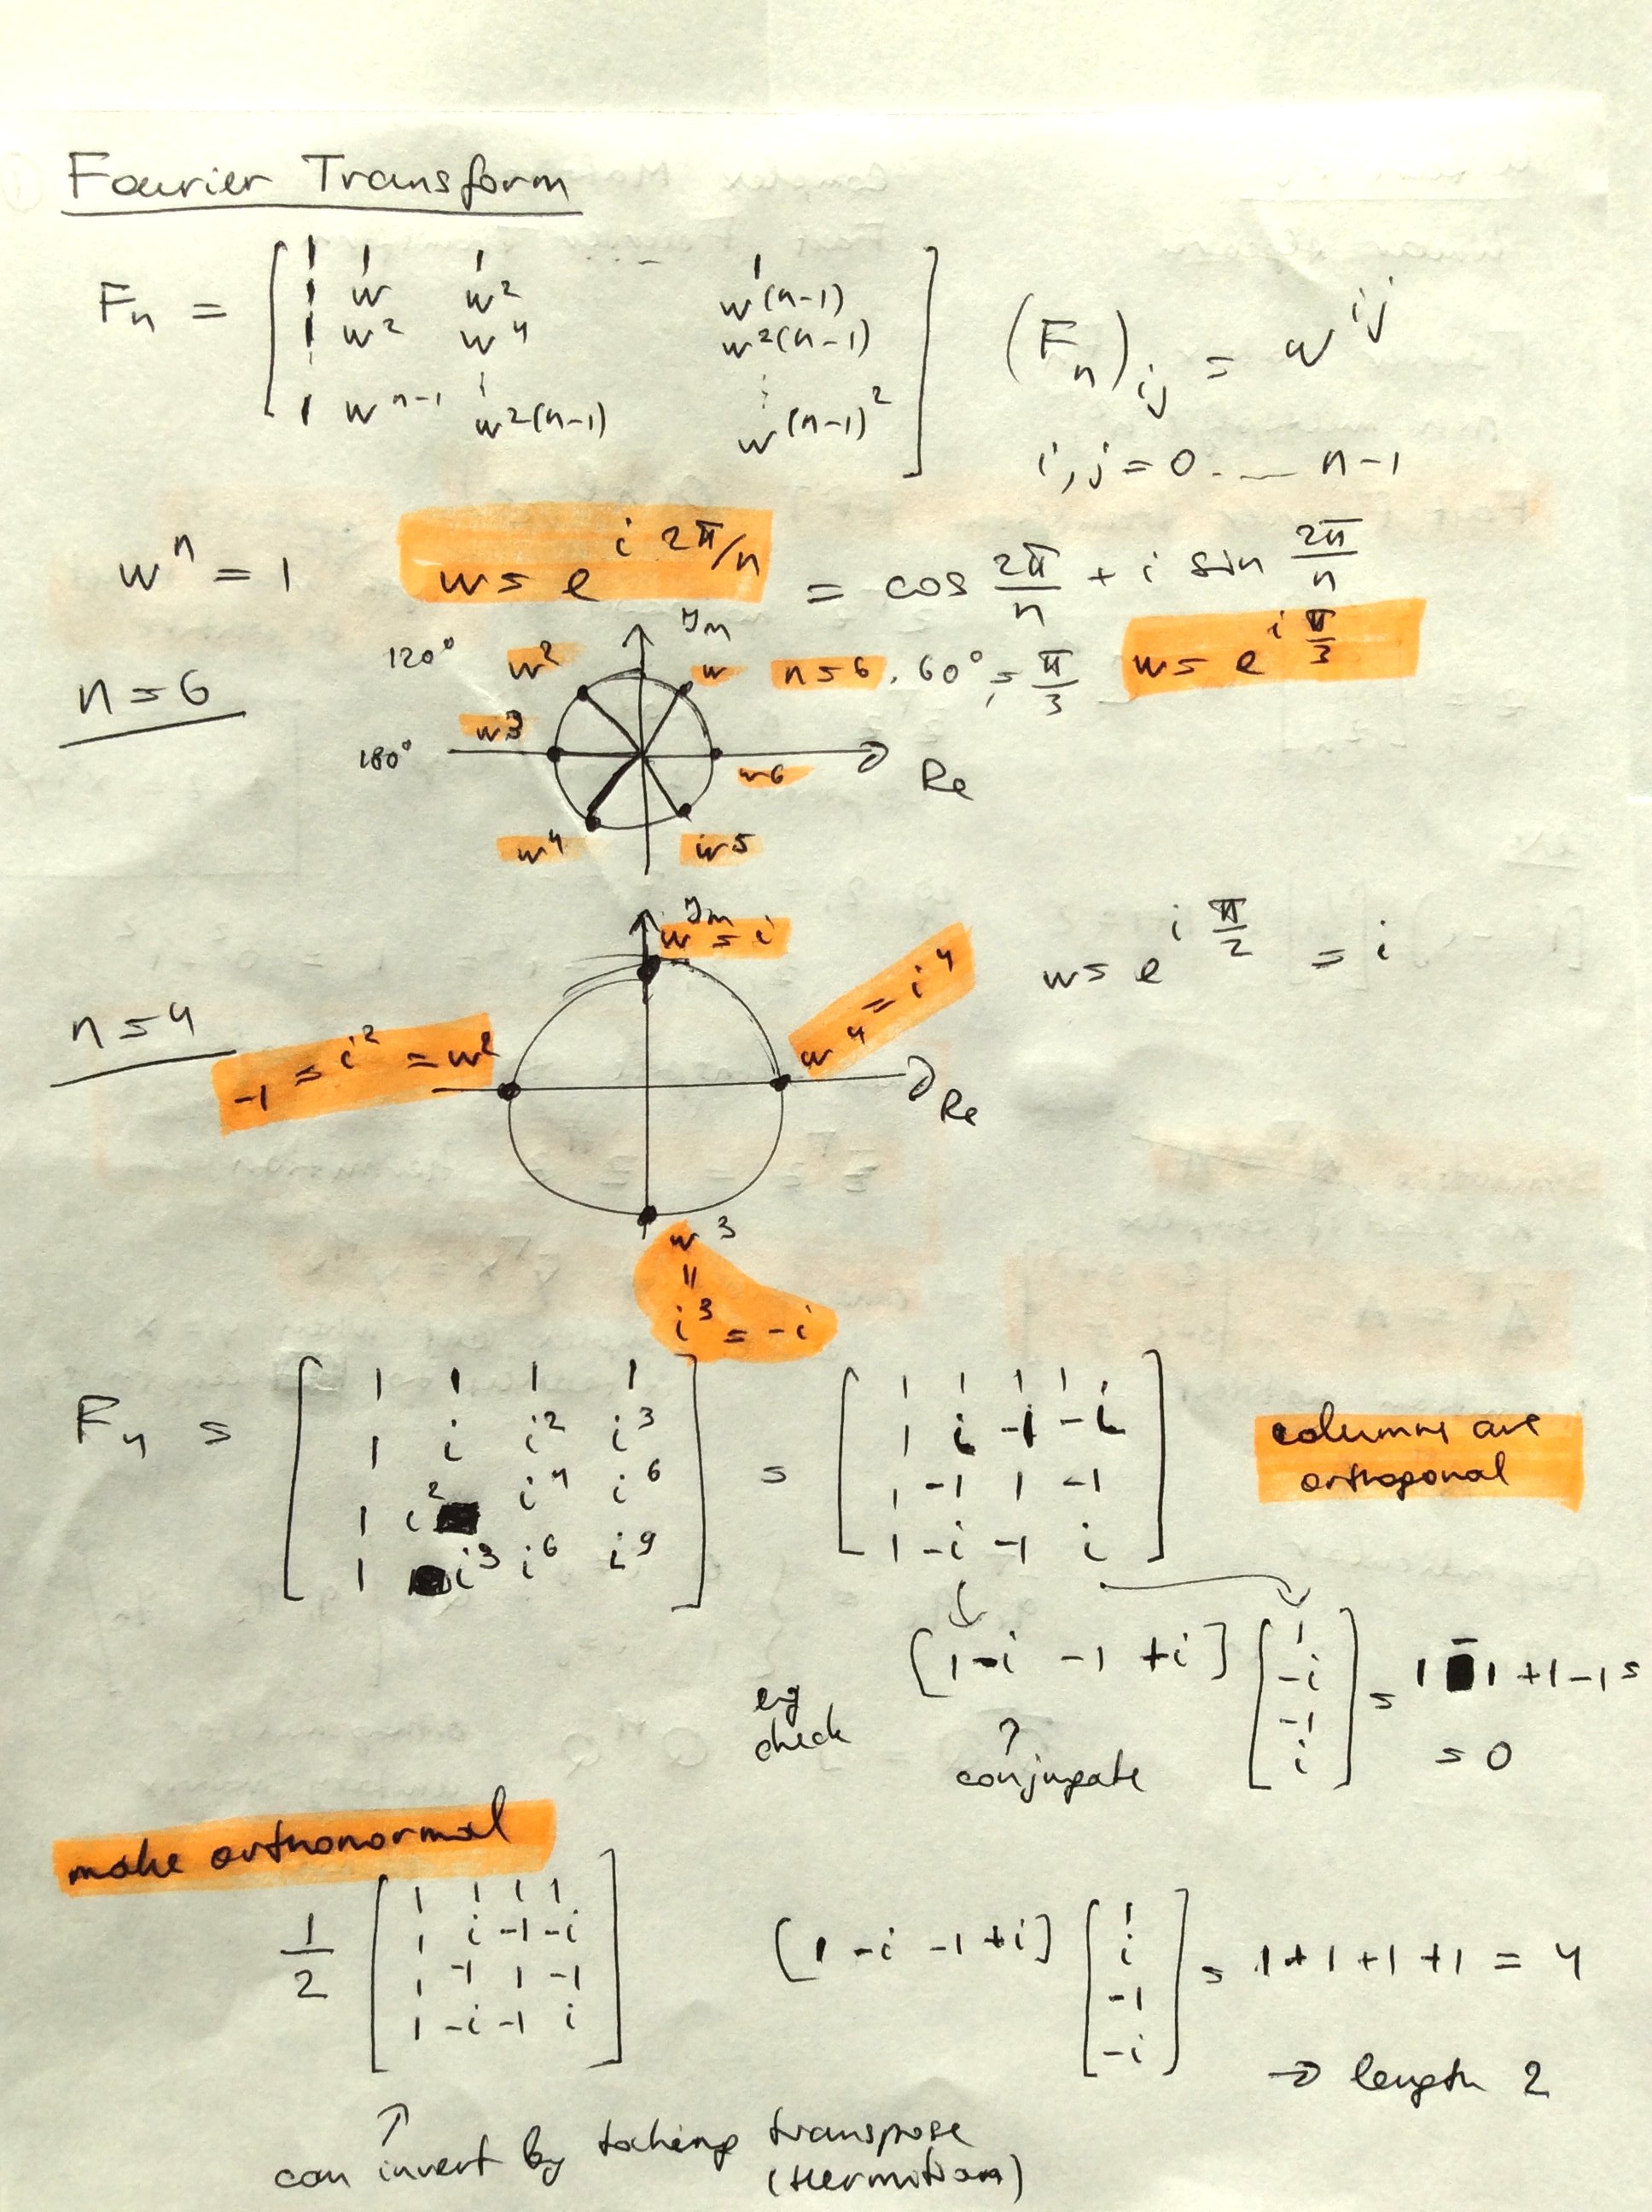 Fourier Transform
Fn = [ 1 1 1 ... 1
1 w w² w^(n-1)
1 w² w⁴ w^2(n-1)
⋮ ⋮ ⋮
1 w^n-1 w^2(n-1) w^(n-1)² ]
(Fn)ij = w^ij
i,j = 0 ... n-1
w^n = 1 w = e^i 2π/n = cos 2π/n + i sin 2π/n
n = 6
120° w² Im w n=6, 60° = π/3 w = e^i π/3
180° w3 w6 Re
w⁴ w⁵
n = 4
Im
w = i
w = e^i π/2 = i
-1 = i² = w² w⁴ = i⁴
Re
w³
=
i³ = -i
F4 = [ 1 1 1 1
1 i i² i³
1 i² i⁴ i⁶
1 i³ i⁶ i⁹ ]
= [ 1 1 1 1
1 i -1 -i
1 -1 1 -1
1 -i -1 i ]
columns are
orthogonal
eg
check
[1 -i -1 +i] [ 1
-i
-1
i ] = 1 - 1 + 1 - 1 =
= 0
↑
conjugate
make orthonormal
1/2 [ 1 1 1 1
1 i -1 -i
1 -1 1 -1
1 -i -1 i ]
[1 -i -1 +i] [ 1
i
-1
-i ] = 1 + 1 + 1 + 1 = 4
→ length 2
↑
can invert by taking transpose
(Hermitian)